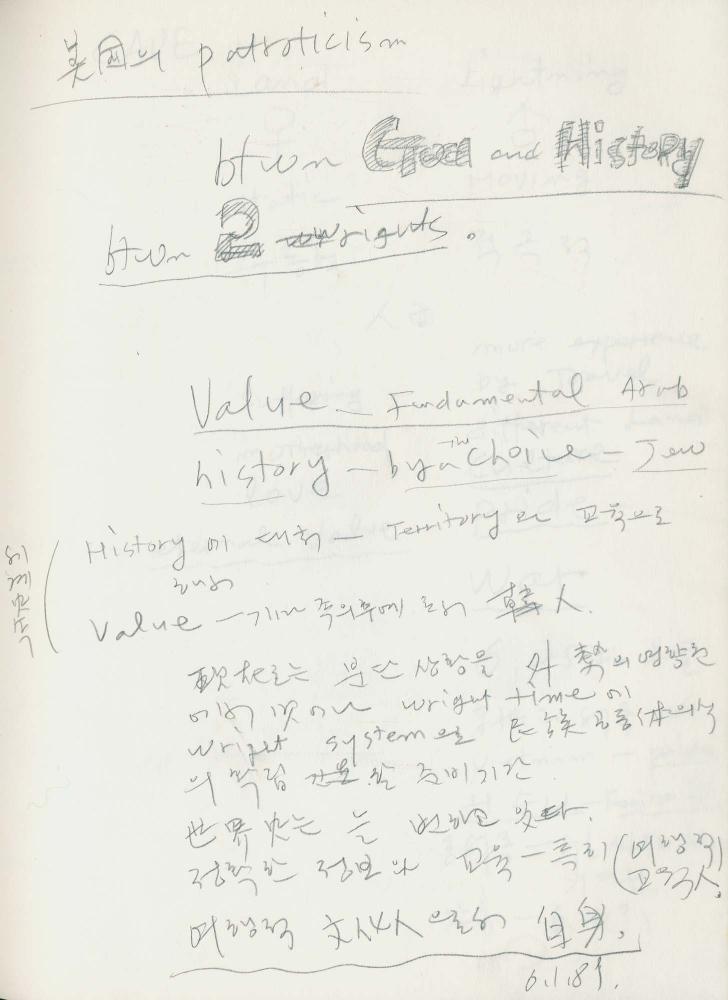 美國의 patroticism
btwn God and History
btwn 2 wrights.
Value - Fundamental Arab
history - by a choice - Jew
History에 대한 - Territory와 교육으로
Value - 韓人.
現在로는 분단상황을 外勢의 영향권
에서 벗어나 wright time에
wright system으로 民族공동体의식
의 확립 할 준비기간
世界史는 늘 변하고 있다.
정확한 정보와 교육 - 특히 (여행적
교육인.
여행적 文化人으로서 自身.
6.1.89.